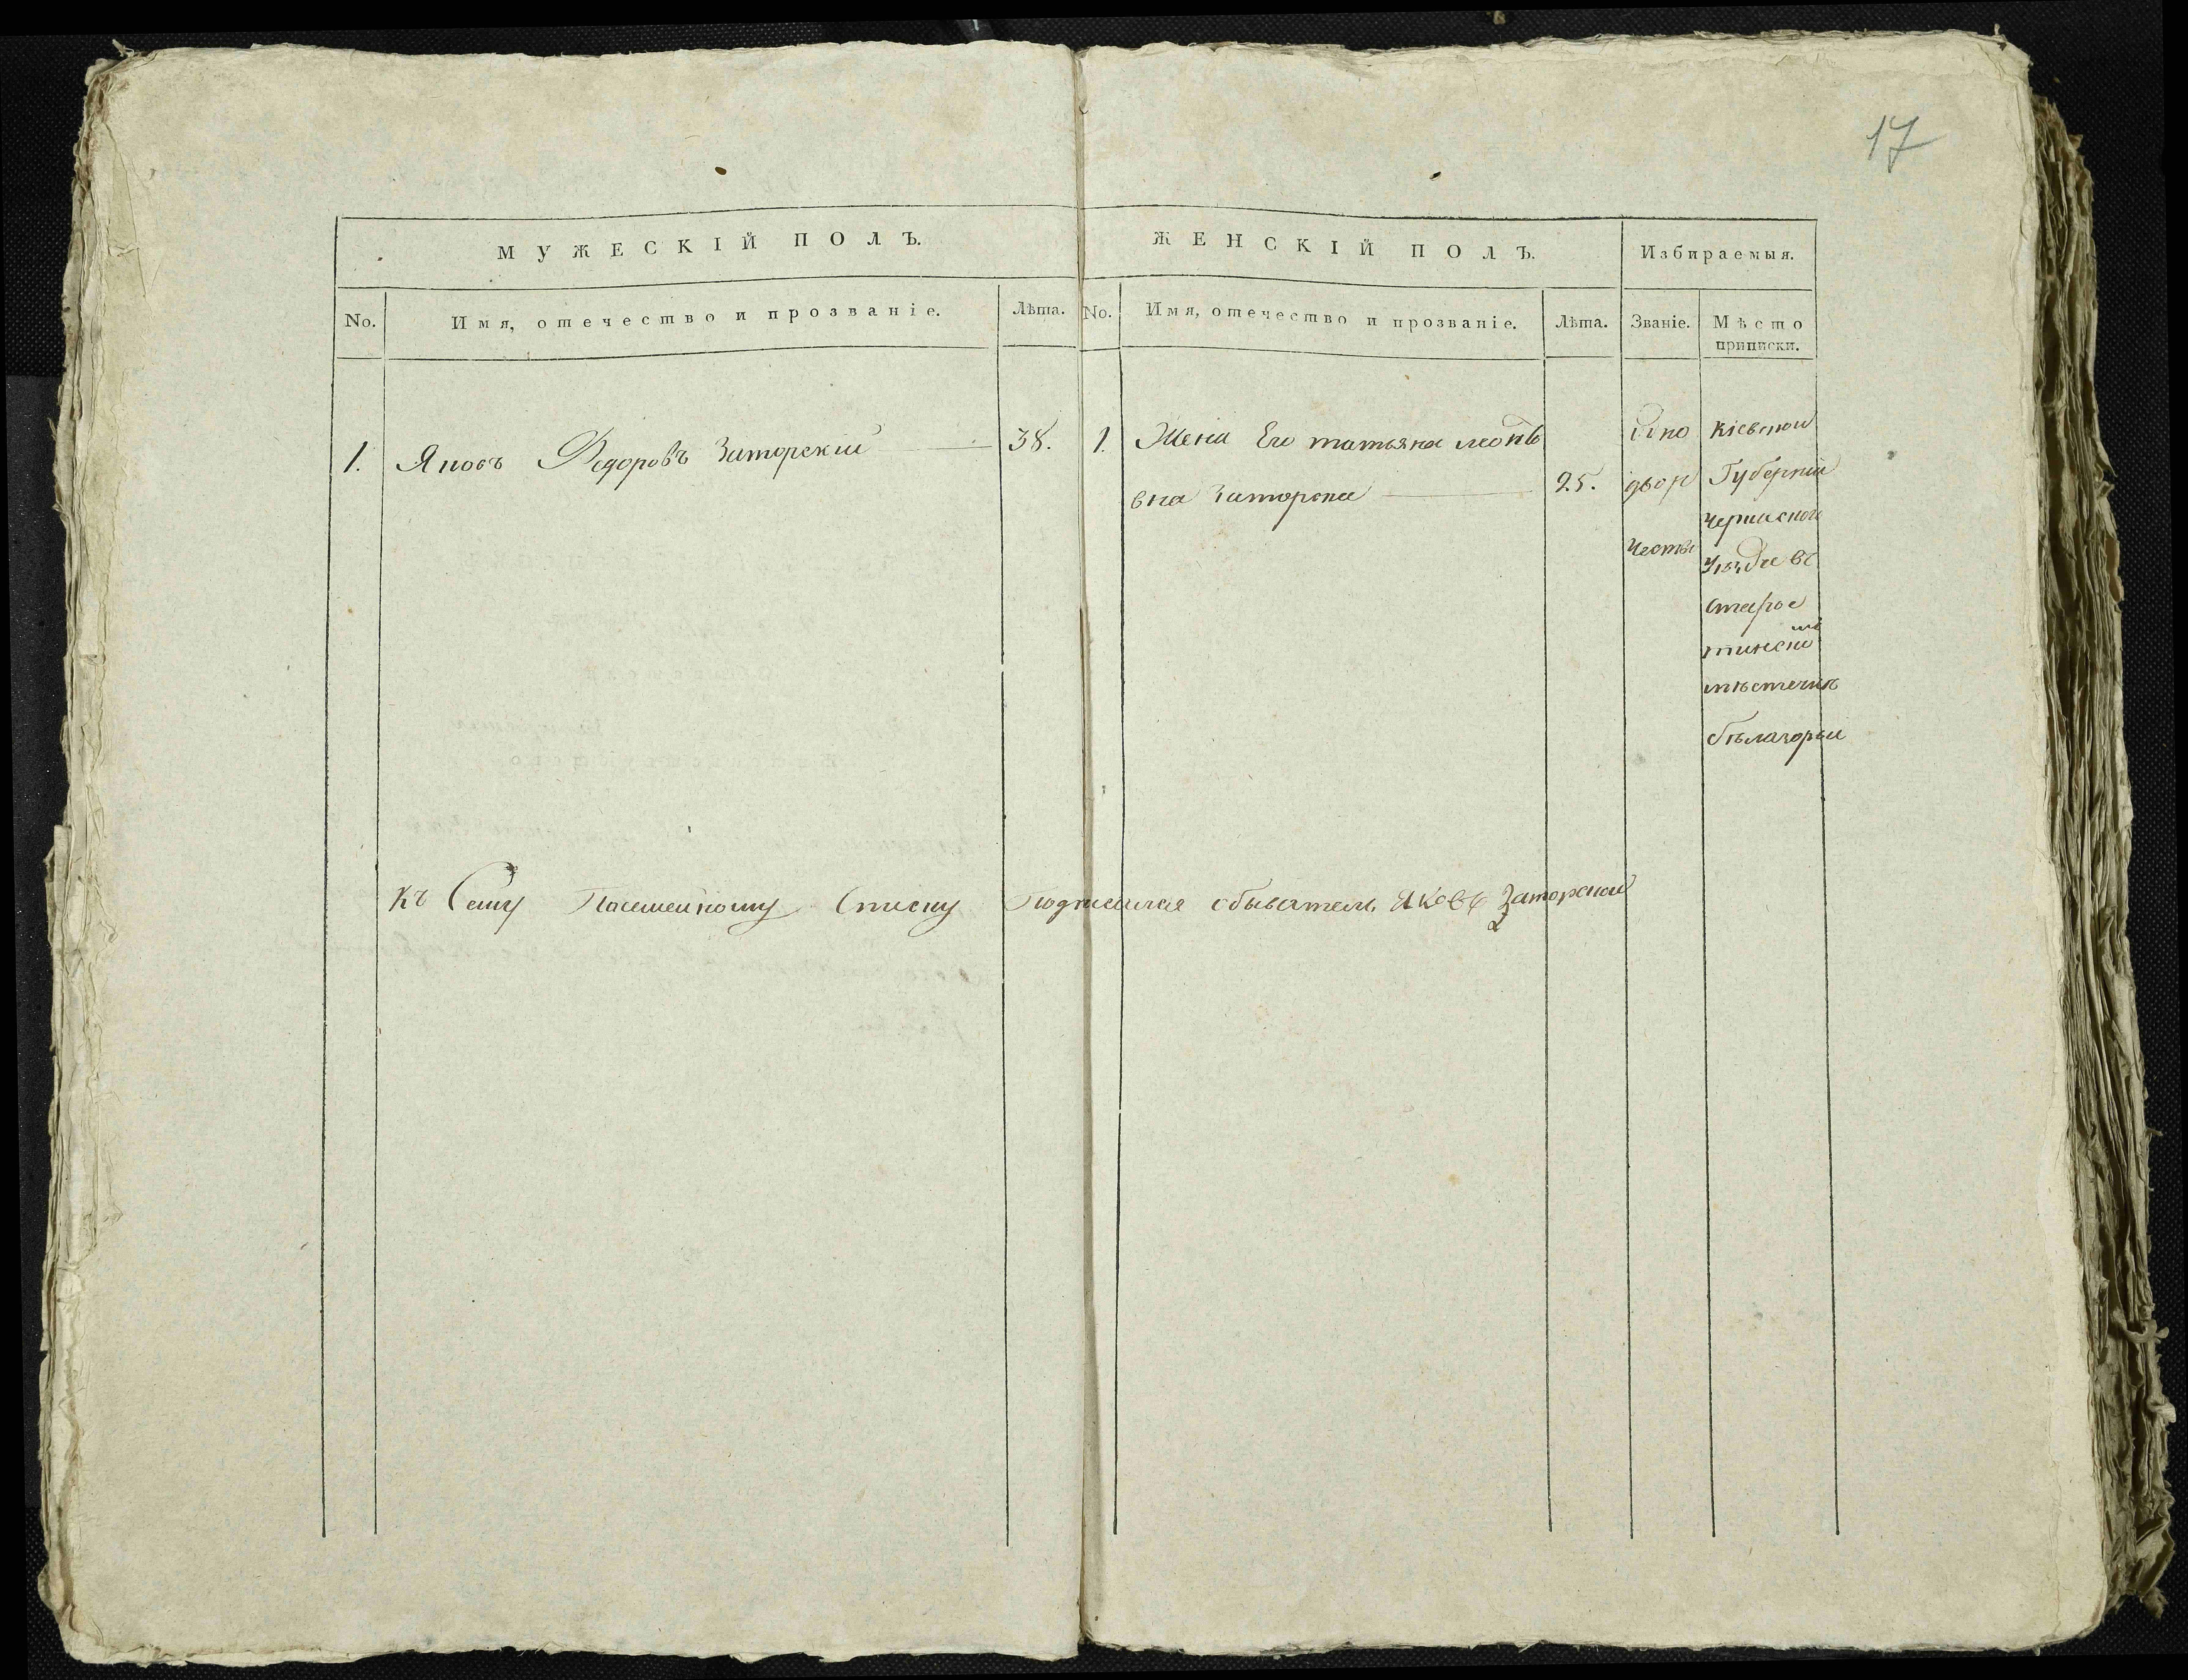 17
МУЖЕСКІЙ ПОЛЪ.
ЖЕНСКІЙ ПОЛЪ.
Избираемыя.
No.
Имя, отечество и прозваніе.
Лѣта.
No.
Имя, отечество и прозваніе.
Лѣта.
Званіе.
Мѣсто
приписки.
1.
Яковъ Федоровъ Заторский
38.
1.
Жена Его татьяна леонть
вна Заторска
25.
двор
чества
Кіевской
Губерніи
Черкаского
Уѣзда въ
старос
тинско
мѣстечкѣ
бѣлазорьи
Къ Сему Посемейному Списку Подписался обыватель Яковъ Заторской